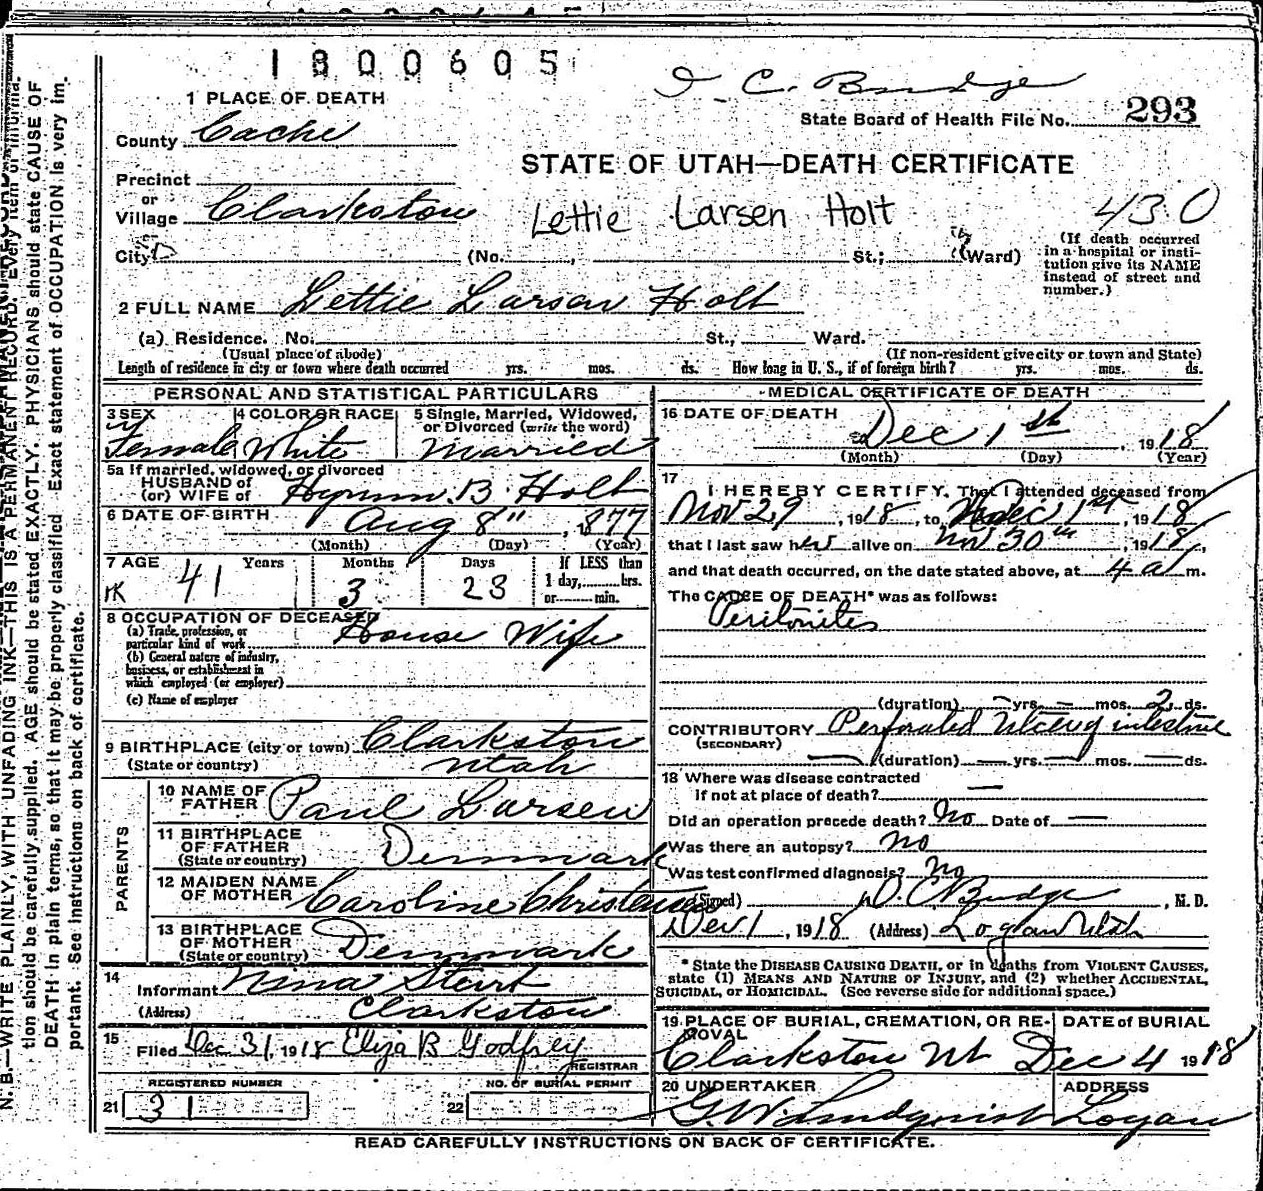 1300605
D. C. Budge
1 PLACE OF DEATH
County Cache
State Board of Health File No. 293
STATE OF UTAH—DEATH CERTIFICATE
Precinct
or
Village Clarkston
Lettie Larsen Holt
430
City (No. , St.; Ward)
(If death occurred in a hospital or institution give its NAME instead of street and number.)
2 FULL NAME Lettie Larson Holt
(a) Residence. No. St., Ward.
(Usual place of abode) (If non-resident give city or town and State)
Length of residence in city or town where death occurred yrs. mos. ds. How long in U. S., if of foreign birth? yrs. mos. ds.
PERSONAL AND STATISTICAL PARTICULARS
3 SEX 4 COLOR OR RACE 5 Single, Married, Widowed, or Divorced (write the word)
Female White Married
5a If married, widowed, or divorced
HUSBAND of
(or) WIFE of Hyrum B. Holt
6 DATE OF BIRTH Aug 8", 1877
(Month) (Day) (Year)
7 AGE Years Months Days If LESS than
41 3 23 1 day, hrs.
or min.
8 OCCUPATION OF DECEASED
(a) Trade, profession, or particular kind of work House Wife
(b) General nature of industry, business, or establishment in which employed (or employer)
(c) Name of employer
9 BIRTHPLACE (city or town) Clarkston
(State or country) Utah
PARENTS
10 NAME OF FATHER Paul Larsen
11 BIRTHPLACE OF FATHER (State or country) Denmark
12 MAIDEN NAME OF MOTHER Caroline
13 BIRTHPLACE OF MOTHER (State or country) Denmark
14 Informant Nina
(Address) Clarkston
15 Filed Dec 31, 1918 Eliza B Godfrey
REGISTRAR
REGISTERED NUMBER NO. OF BURIAL PERMIT
21 31 22
MEDICAL CERTIFICATE OF DEATH
16 DATE OF DEATH
Dec 1st, 1918
(Month) (Day) (Year)
17 I HEREBY CERTIFY, That I attended deceased from
Nov 29, 1918, to Dec 1st, 1918
that I last saw her alive on Nov 30th, 1918,
and that death occurred, on the date stated above, at 4 a m.
The CAUSE OF DEATH* was as follows:
Peritonites
(duration) — yrs. — mos. 2 ds.
CONTRIBUTORY Perforated Ulcer intestine
(SECONDARY)
(duration) — yrs. — mos. — ds.
18 Where was disease contracted
if not at place of death? —
Did an operation precede death? No Date of —
Was there an autopsy? no
Was test confirmed diagnosis? No
(Signed) D. C. Budge, M. D.
Dec 1, 1918 (Address) Logan Utah
* State the DISEASE CAUSING DEATH, or in deaths from VIOLENT CAUSES,
state (1) MEANS AND NATURE OF INJURY, and (2) whether ACCIDENTAL,
SUICIDAL, or HOMICIDAL. (See reverse side for additional space.)
19 PLACE OF BURIAL, CREMATION, OR REMOVAL DATE of BURIAL
Clarkston Ut Dec 4 1918
20 UNDERTAKER ADDRESS
G. W. Lindquist Logan
READ CAREFULLY INSTRUCTIONS ON BACK OF CERTIFICATE.
N. B.—WRITE PLAINLY, WITH UNFADING INK—THIS IS A PERMANENT RECORD. Every item of
tion should be carefully supplied. AGE should be stated EXACTLY. PHYSICIANS should state CAUSE OF
DEATH in plain terms, so that it may be properly classified. Exact statement of OCCUPATION is very im-
portant. See instructions on back of certificate.